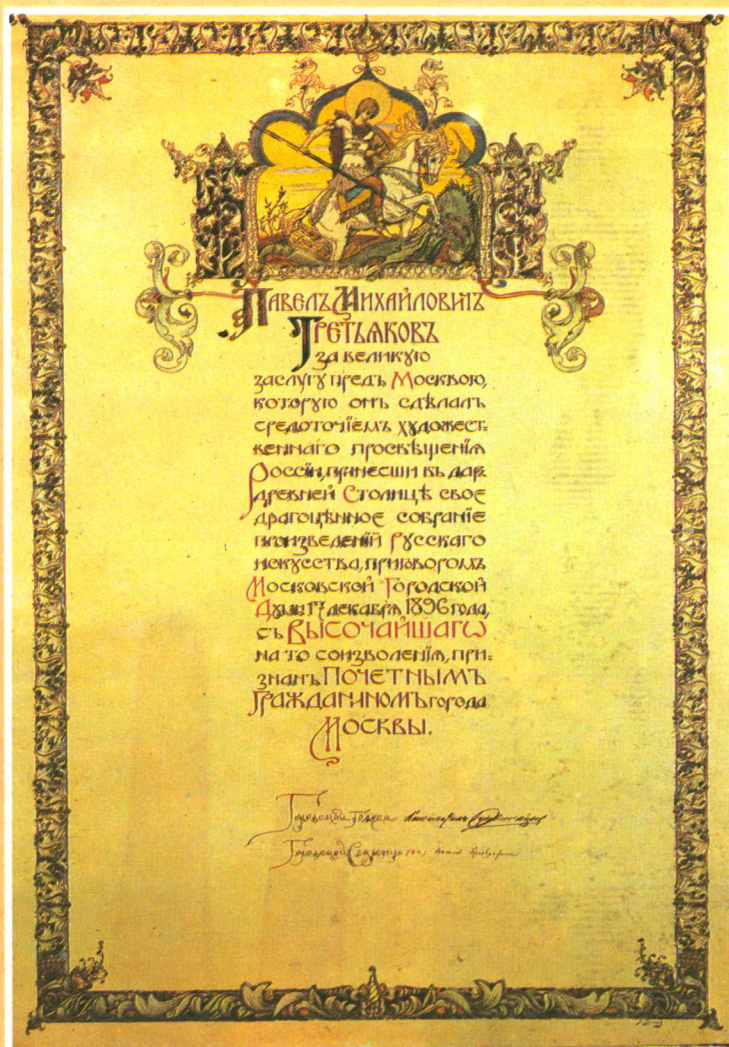 Павелъ Михайловичъ
Третьяковъ
за великую
заслугу предъ Москвою,
которую онъ сдѣлалъ
средоточіемъ художест-
веннаго просвѣщенія
Россіи, принесши въ даръ
древней Столицѣ свое
драгоцѣнное собраніе
произведеній Русскаго
искусства, приговоромъ
Московской Городской
Думы 17 декабря 1896 года,
съ Высочайшаго
на то соизволенія, при-
знанъ ПОЧЕТНЫМЪ
ГРАЖДАНИНОМЪ города
Москвы.
Городской Голова
Городской Секретарь